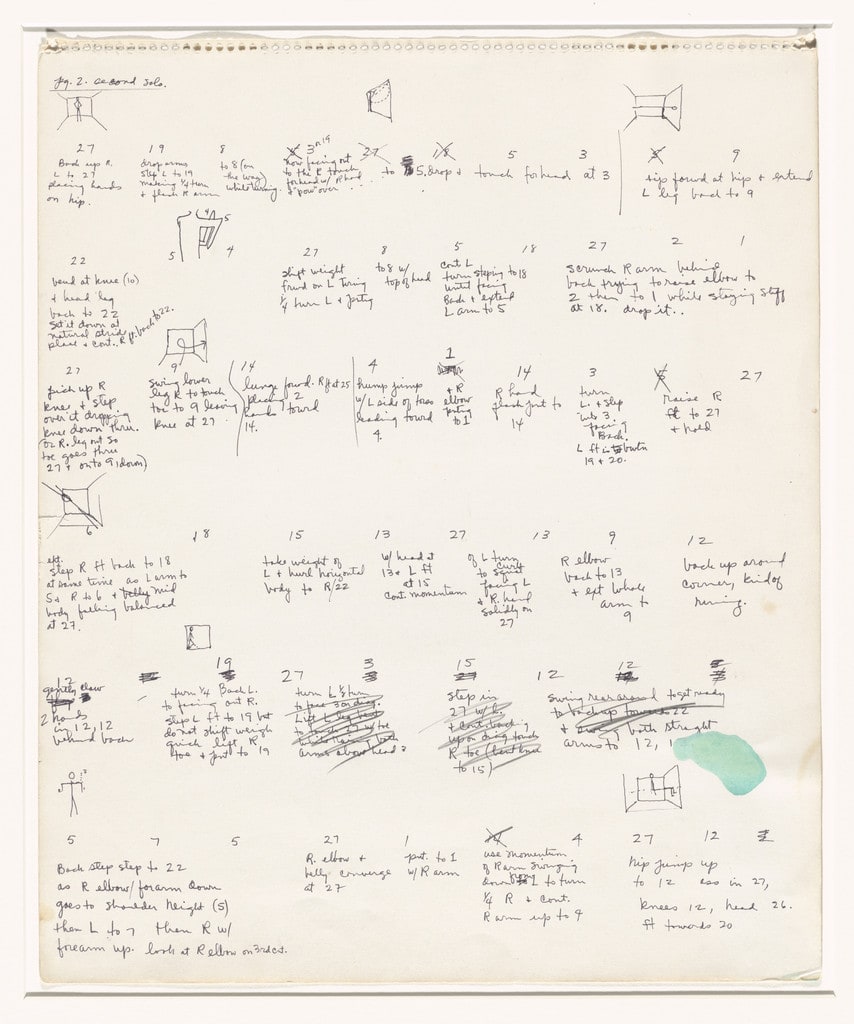 pg. 2. second solo.
27 19 8 3 or 19 27 to 18 5 3 5 9
Back up R.
L to 27
placing hands
on hip.
drop arms
step L to 19
making 1/4 turn
+ flash R arm
to 8 (on
the way)
while turning.
now facing out
to the R touch
forhead w/ R hand
+ "pow" over
to 5, drop + touch forhead at 3
tip forwd at hip + extend
L leg back to 9
4 5
5 4
22 27 8 5 18 27 2 1
bend at knee (10)
+ head leg
back to 22
set it down at
natural stride
place + cont. R ft. back to 22.
shift weight
frwd on L turing
1/4 turn L + jutting
to 8 w/
top of head
cont L
turn steping to 18
until facing
Back + extend
L arm to 5
scrunch R arm behind
back trying to raise elbow to
2 then to 1 while staying stiff
at 18. drop it..
27 9 14 4 1 14 3 5 27
pick up R
knee + step
over it dropping
knee down thru.
(or R. leg out so
toe goes thru
27 + onto 9, down)
swing lower
leg R to touch
toe to 9 leaving
knee at 27.
lunge forwd. R ft at 25
placing 2
hands toward
14.
hump jump
w/ L side of torso
leading toward
4.
+ R
elbow
jutting
to 1
R hand
flash jut to
14
turn
L. + step
into 3.
facing
Back.
L ft is to btwn
19 + 20.
raise R
ft to 27
+ hold
6
18 15 13 27 13 9 12
ext.
step R ft back to 18
at same time as L arm to
5 + R to 6 + belly mid
body falling balanced
at 27.
take weight of
L + hurl horizontal
body to R/22
w/ head at
13 + L ft
at 15
cont. momentum
of L turn
to squat
facing L
+ R. hand
solidly on
27
R elbow
back to 13
+ ext whole
arm to
9
back up around
corner, kind of
running.
12 19 27 3 15 12 12
gently claw
2 hands
in 12, 12
behind back
turn 1/4 Back L.
to facing out R.
step L ft to 19 but
do not shift weight
quick lift R
toe + jut to 19
turn L 1/2 turn
to face
arms above head
step in
27 w/ L.
+ cont. backing
up on diag. touch
R toe (bent knee
to 15)
swing rear around to get ready
to back up towards 22
+ swing both straight
arms to 12, 1
5 7 5 27 1 4 27 12
Back step step to 22
as R elbow/forarm down
goes to shoulder height (5)
then L to 7 then R w/
forearm up. look at R elbow on 3rd ct.
R. elbow +
belly converge
at 27
jut. to 1
w/ R arm
use momentum
of R arm swinging
down L to turn
1/4 R + cont.
R arm up to 9
hip jump up
to 12 ass in 27,
knees 12, head 26.
ft towards 20